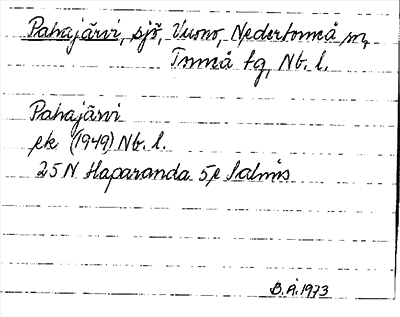 Pahajärvi, sjö, Vuono, Nedertorneå sn,
Torneå tg, Nb. l.
Pahajärvi
ek (1949) Nb. l.
25 N Haparanda 5e Salmis
B.Å. 1973